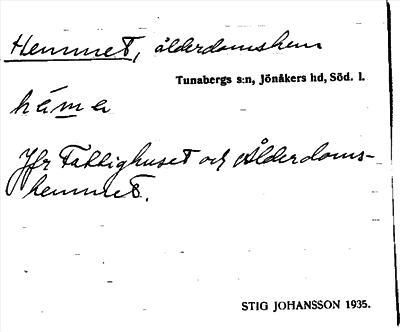 Hemmet, ålderdomshem
Tunabergs s:n, Jönåkers hd, Söd. l.
Jfr Fattighuset och Ålderdoms-
hemmet.
STIG JOHANSSON 1935.